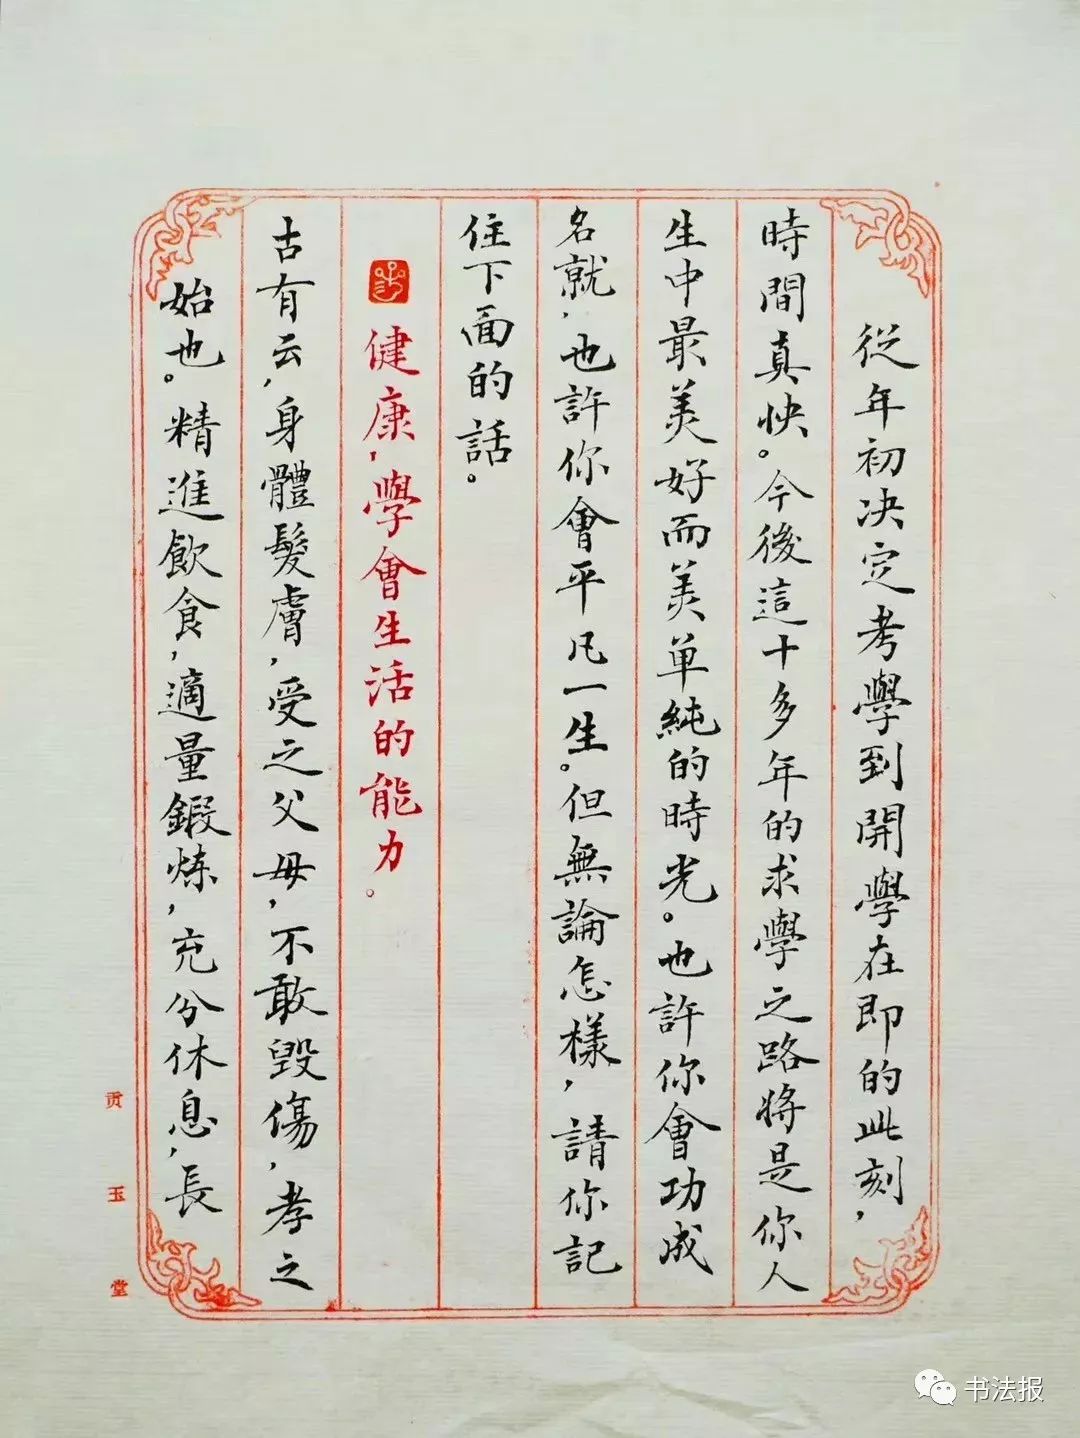 從年初决定考學到開學在即的此刻，
時間真快。今後這十多年的求學之路將是你人
生中最美好而美单純的時光。也許你會功成
名就，也許你會平凡一生。但無論怎樣，請你記
住下面的話。
健康，學會生活的能力。
古有云，身體髮膚，受之父母，不敢毀傷，孝之
始也。精進飲食，適量鍛炼，充分休息，長
贡玉堂
书法报